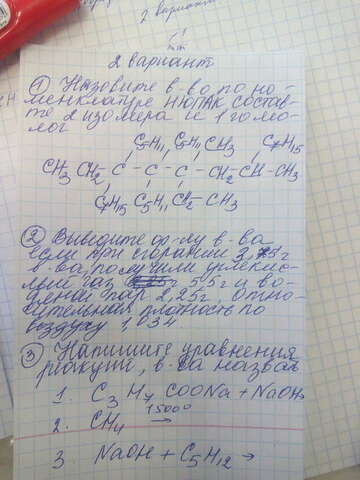 2 вариант
① Назовите в-во по но-
менклатуре ИЮПАК, состав-
те 2 изомера и 1 гомо-
лог
C5H11 C5H11 CH3 C7H15
CH3 CH2 - C - C - C - CH2 - CH - CH3
C7H15 C5H11 CH2 - CH3
② Выведите ф-лу в-ва
если при сгорании
в-ва, получили углекис-
лый газ 5,5г и во-
дяной пар 2,25г. Отно-
сительная плотность по
воздуху 1,034
③ Напишите уравнения
реакции, в-ва назвать
1. C3H7COONa + NaOH
2. CH4 1500° →
3. NaOH + C5H12 →